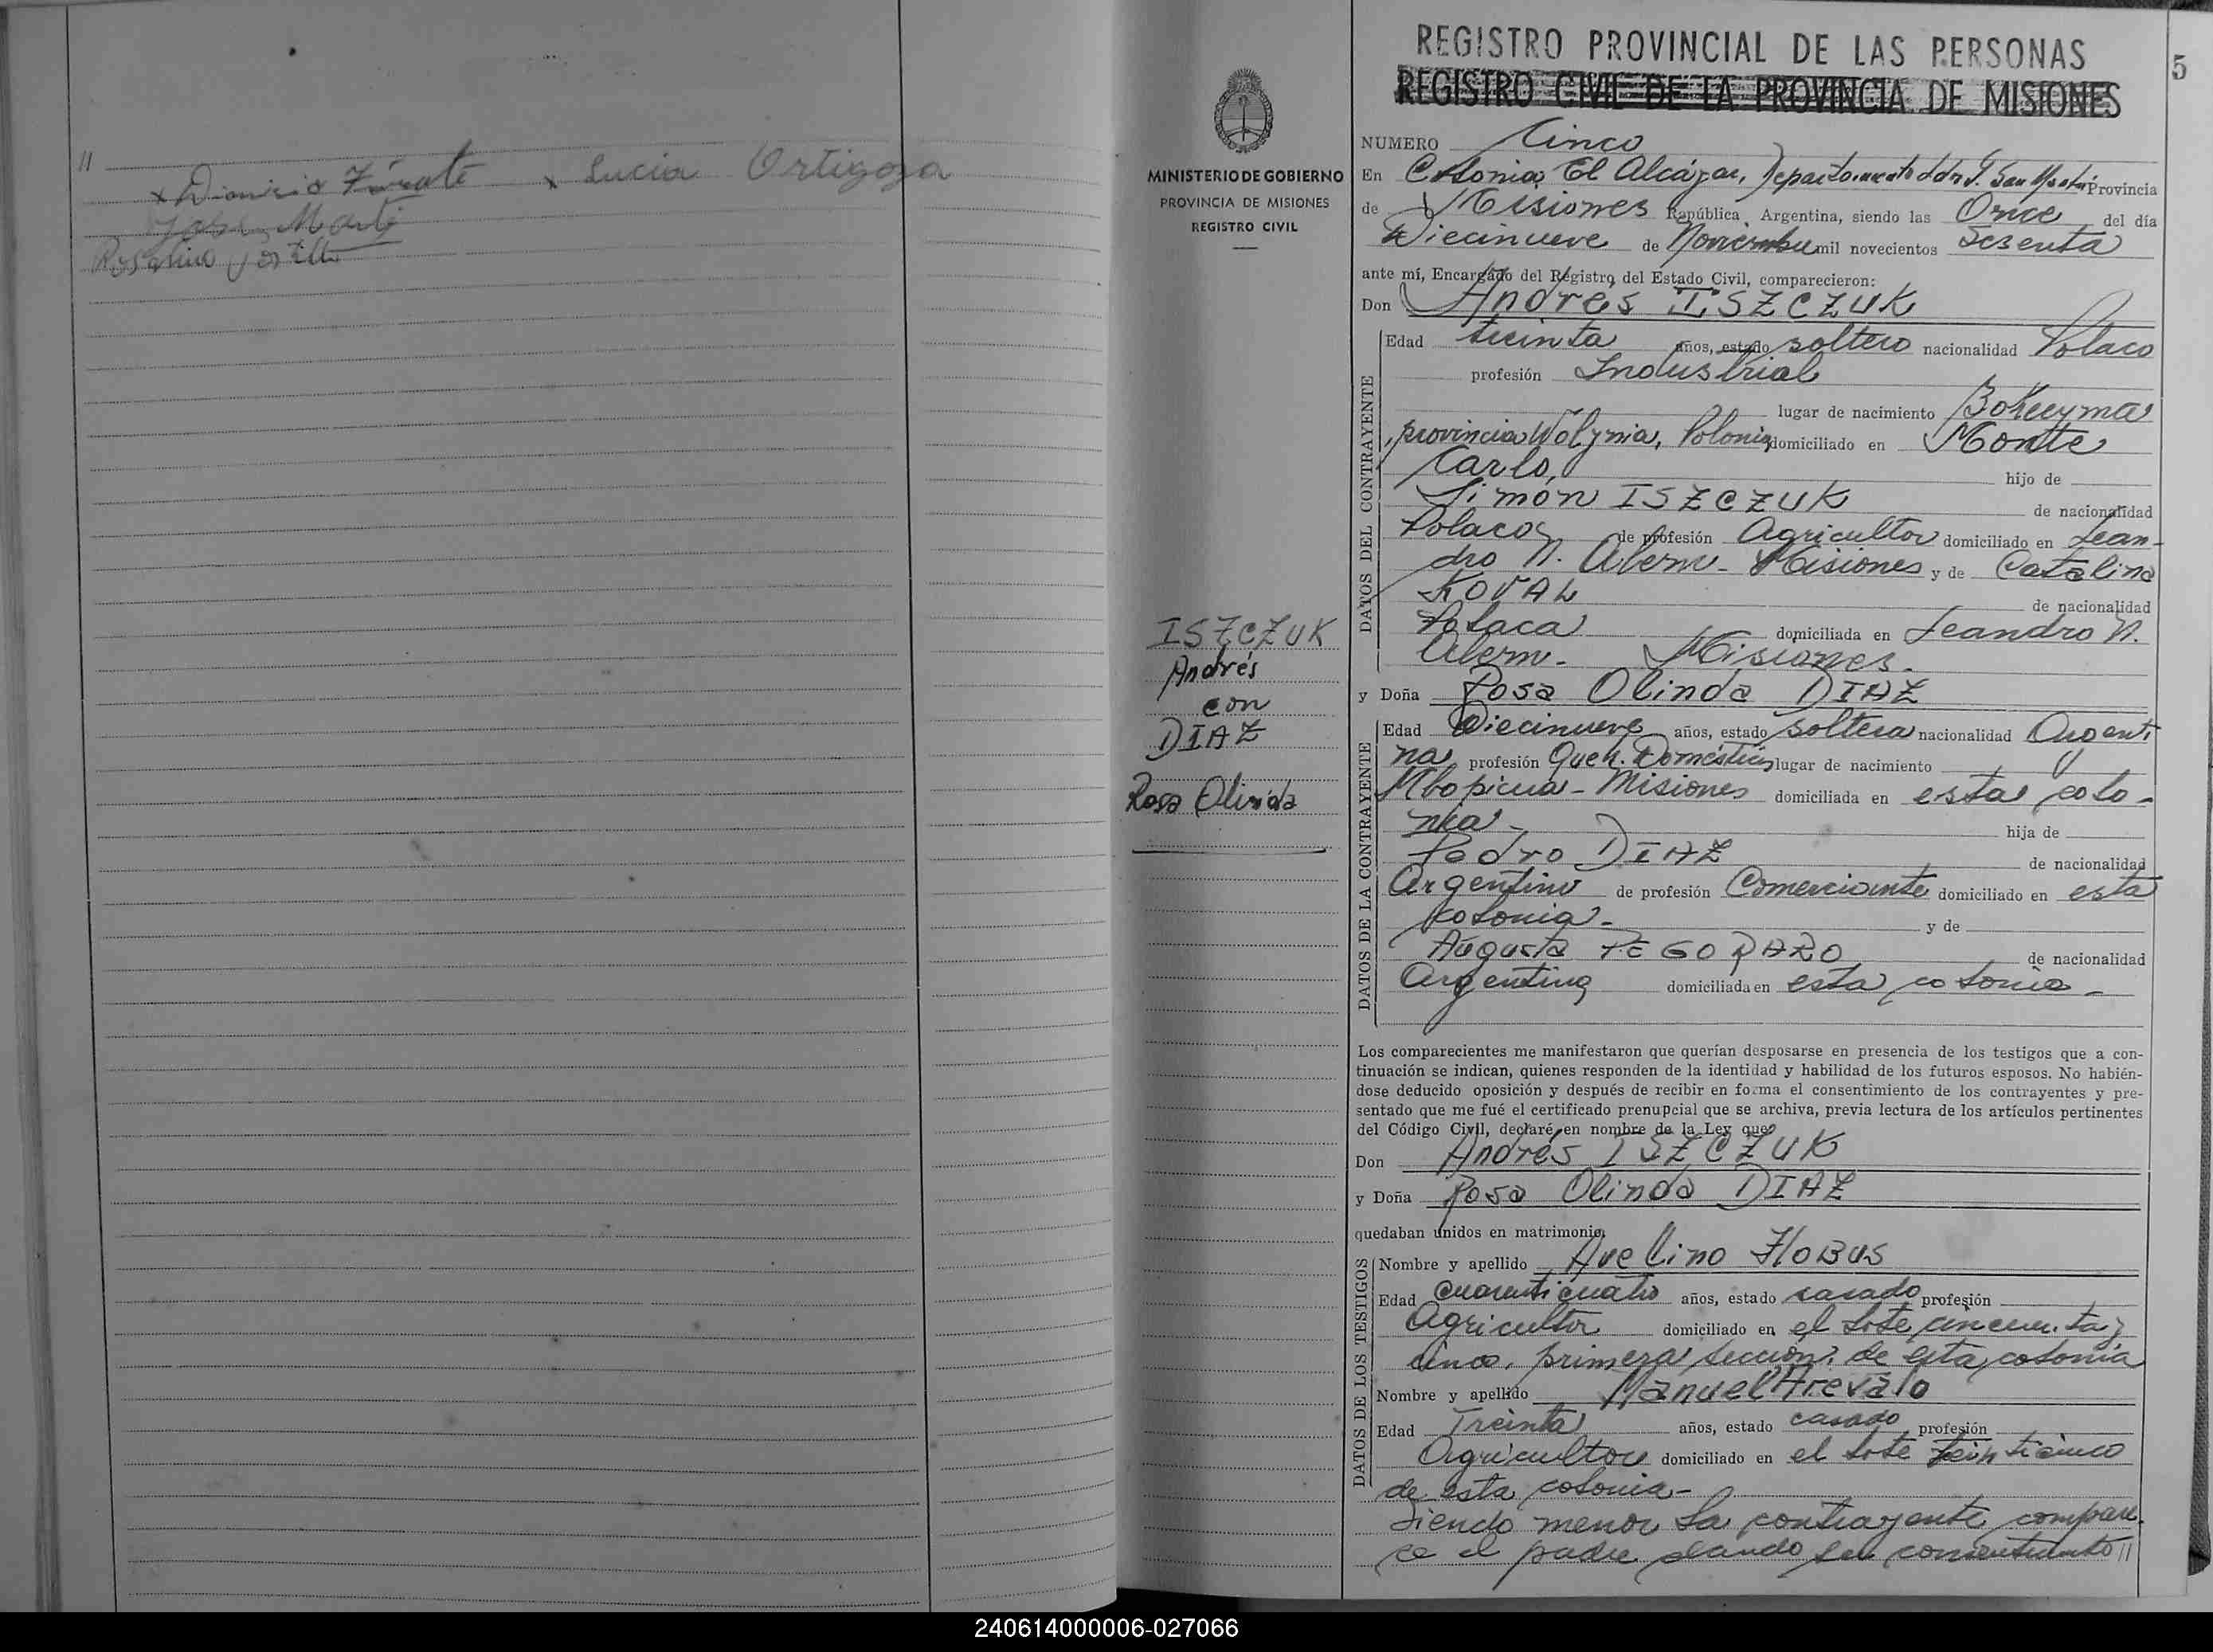 11
x Dionicio Zárate x Lucia Ortigoza
José Marti
REGISTRO PROVINCIAL DE LAS PERSONAS
5
REGISTRO CIVIL DE LA PROVINCIA DE MISIONES
MINISTERIO DE GOBIERNO
PROVINCIA DE MISIONES
REGISTRO CIVIL
ISZCZUK
Andrés
con
DIAZ
Rosa Olinda
NUMERO Cinco
En Colonia El Alcázar, Departamento Ldor G. San Martín Provincia
de Misiones República Argentina, siendo las Once del día
Diecinueve de Noviembre mil novecientos Sesenta
ante mí, Encargado del Registro del Estado Civil, comparecieron:
Don Andrés ISZCZUK
DATOS DEL CONTRAYENTE
Edad treinta años, estado soltero nacionalidad Polaco
profesión Industrial
lugar de nacimiento
provincia Wolynia, Polonia, domiciliado en Monte
Carlo, hijo de
Simón ISZCZUK de nacionalidad
Polaco de profesión Agricultor domiciliado en Lean-
dro N. Alem - Misiones y de Catalina
KOVAL de nacionalidad
Polaca domiciliada en Leandro N.
Alem - Misiones.
y Doña Rosa Olinda DIAZ
DATOS DE LA CONTRAYENTE
Edad Diecinueve años, estado soltera nacionalidad Argenti
na, profesión Queh. Domésticos lugar de nacimiento
Mbopicua - Misiones domiciliada en esta colo-
nia - hija de
Pedro DIAZ de nacionalidad
Argentino de profesión Comerciante domiciliado en esta
colonia - y de
Augusta PEGORARO de nacionalidad
Argentina domiciliada en esta colonia -
Los comparecientes me manifestaron que querían desposarse en presencia de los testigos que a con-
tinuación se indican, quienes responden de la identidad y habilidad de los futuros esposos. No habién-
dose deducido oposición y después de recibir en forma el consentimiento de los contrayentes y pre-
sentado que me fué el certificado prenupcial que se archiva, previa lectura de los artículos pertinentes
del Código Civil, declaré, en nombre de la Ley que
Don Andrés ISZCZUK
y Doña Rosa Olinda DIAZ
quedaban unidos en matrimonio,
DATOS DE LOS TESTIGOS
Nombre y apellido Avelino FLOBUS
Edad cuarenticuatro años, estado casado profesión
Agricultor domiciliado en el lote cincuenta y
cinco, primera sección, de esta colonia
Nombre y apellido Manuel Arevalo
Edad Treinta años, estado casado profesión
Agricultor domiciliado en el lote Veinticinco
de esta colonia -
Siendo menor la contrayente compare
ce el padre dando su consentimiento //
240614000006-027066